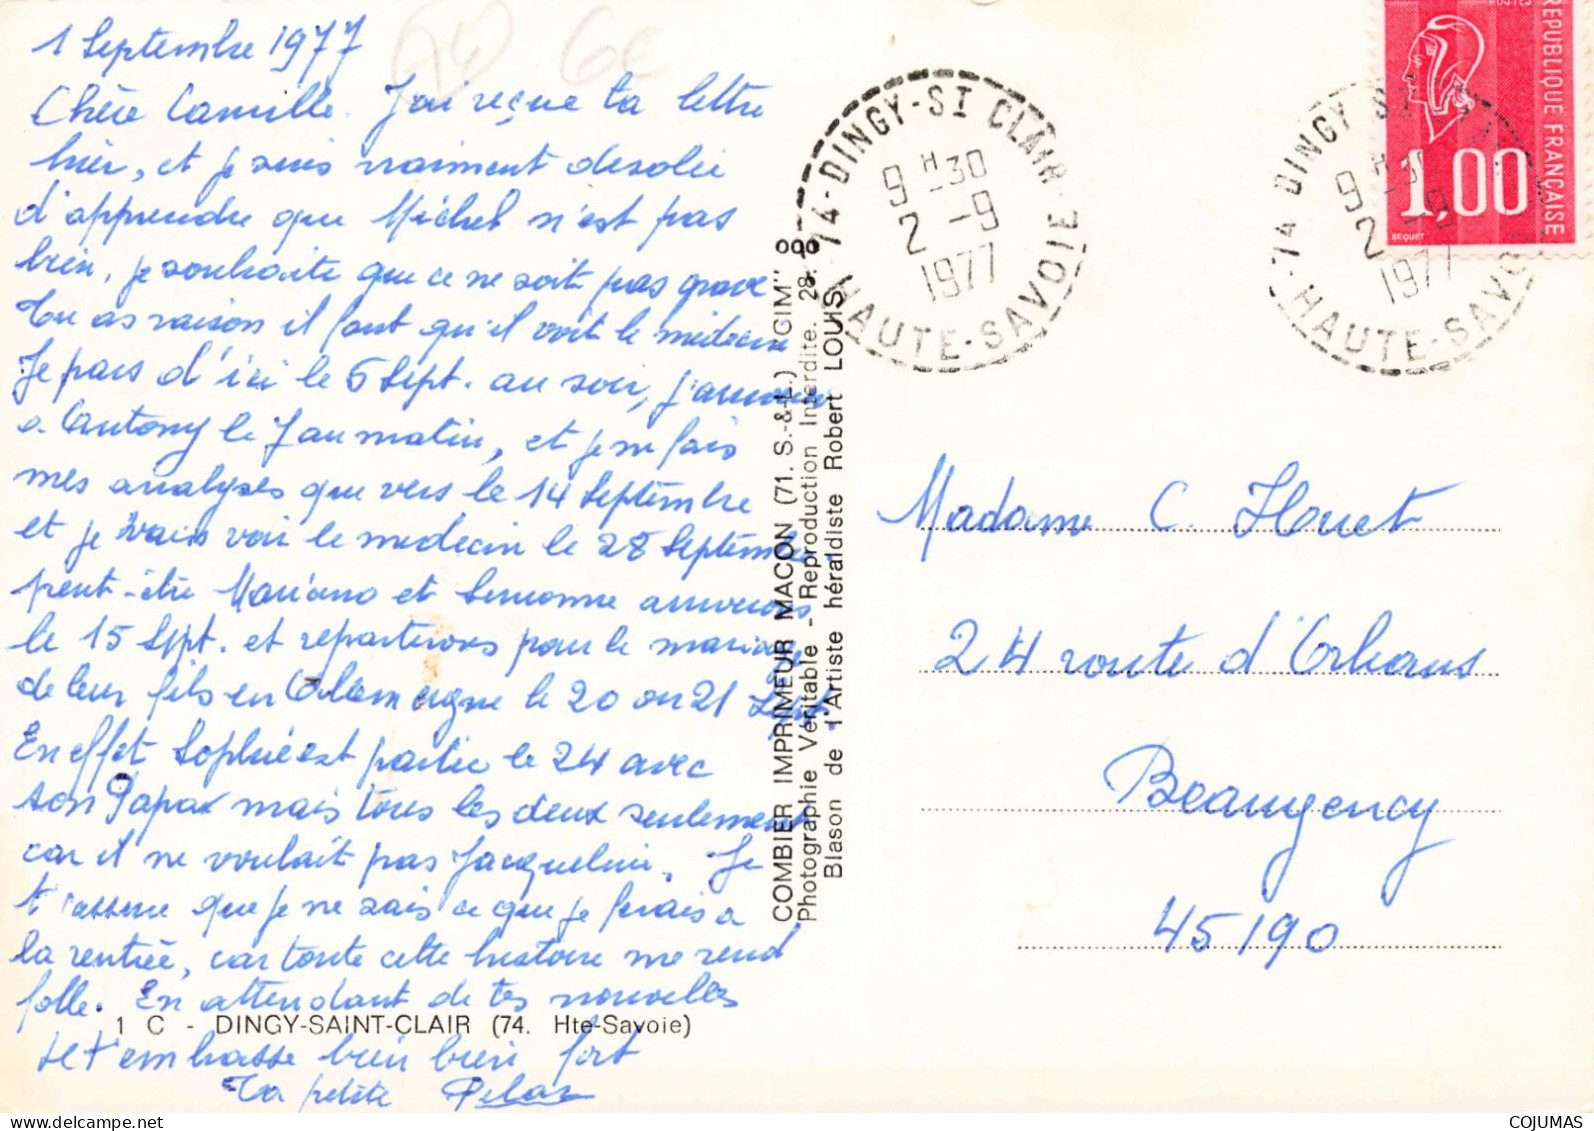 1 Septembre 1977
Chère Camille. J'ai reçue ta lettre
hier, et je suis vraiment desolée
d'apprendre que Michel n'est pas
bien, je souhaite que ce ne soit pas grave
Tu as raison il faut qu'il voit le médecin
Je pars d'ici le 6 Sept. au soir, j'arriverai
a Antony le 7 au matin, et je ne fais
mes analyses que vers le 14 Septembre
et je vais voir le medecin le 28 Septembre
peut-être Mariano et Simonne arriverons
le 15 Sept. et repartirons pour le mariage
de leur fils en Allemagne le 20 ou 21 Sept.
En effet Sophie est partie le 24 avec
son Papa mais tous les deux seulement
car il ne voulait pas Jacqueline. Je
t'assure que je ne sais ce que je ferais a
la rentrée, car toute cette histoire me rend
folle. En attendant de tes nouvelles
1 C - DINGY-SAINT-CLAIR (74. Hte-Savoie)
Je t'embrasse bien bien fort
Ta petite Pilar
6€
COMBIER IMPRIMEUR MACON (71. S.-&-L.) "CIM"
Photographie Véritable - Reproduction Interdite. 28.
Blason de l'Artiste héraldiste Robert LOUIS
74-DINGY-ST CLAIR
9H-30
2 -9
1977
HAUTE-SAVOIE
74 DINGY ST
9H30
2 -9
1977
HAUTE-SAVOIE
POSTES
REPUBLIQUE FRANÇAISE
1,00
BEQUET
Madame C. Houet
24 route d'Orléans
Beaugency
45190
COJUMAS